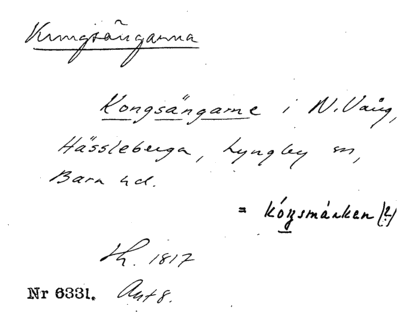 Kungsängarna
Kongsängarne i N. Vång,
Hässleberga, Lyngby sn,
Bara hd.
= kóngsmánken (?)
Sk. 1817
Nr 6331. Ant 8.